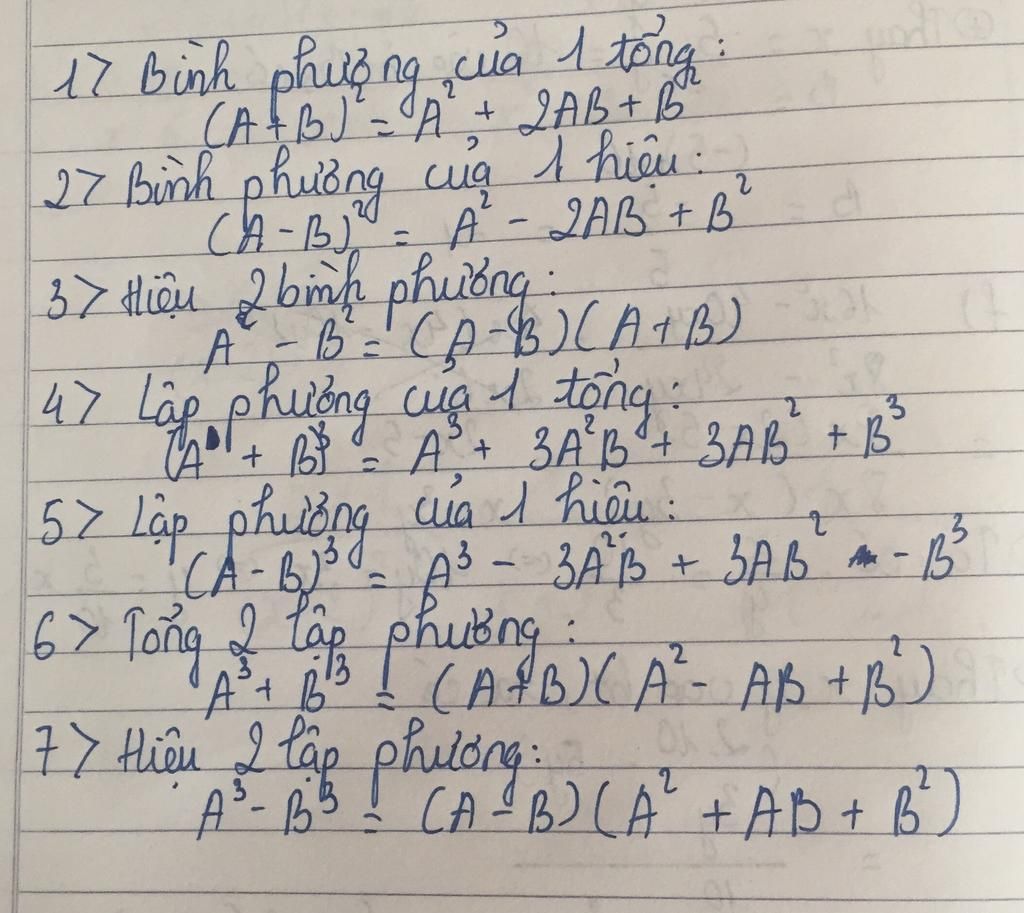 1> Bình phương của 1 tổng:
(A+B)² = A² + 2AB + B²
2> Bình phương của 1 hiệu:
(A - B)² = A² - 2AB + B²
3> Hiệu 2 bình phương:
A² - B² = (A - B)(A + B)
4> Lập phương của 1 tổng:
(A + B)³ = A³ + 3A²B + 3AB² + B³
5> Lập phương của 1 hiệu:
(A - B)³ = A³ - 3A²B + 3AB² - B³
6> Tổng 2 lập phương:
A³ + B³ = (A + B)(A² - AB + B²)
7> Hiệu 2 lập phương:
A³ - B³ = (A - B)(A² + AB + B²)